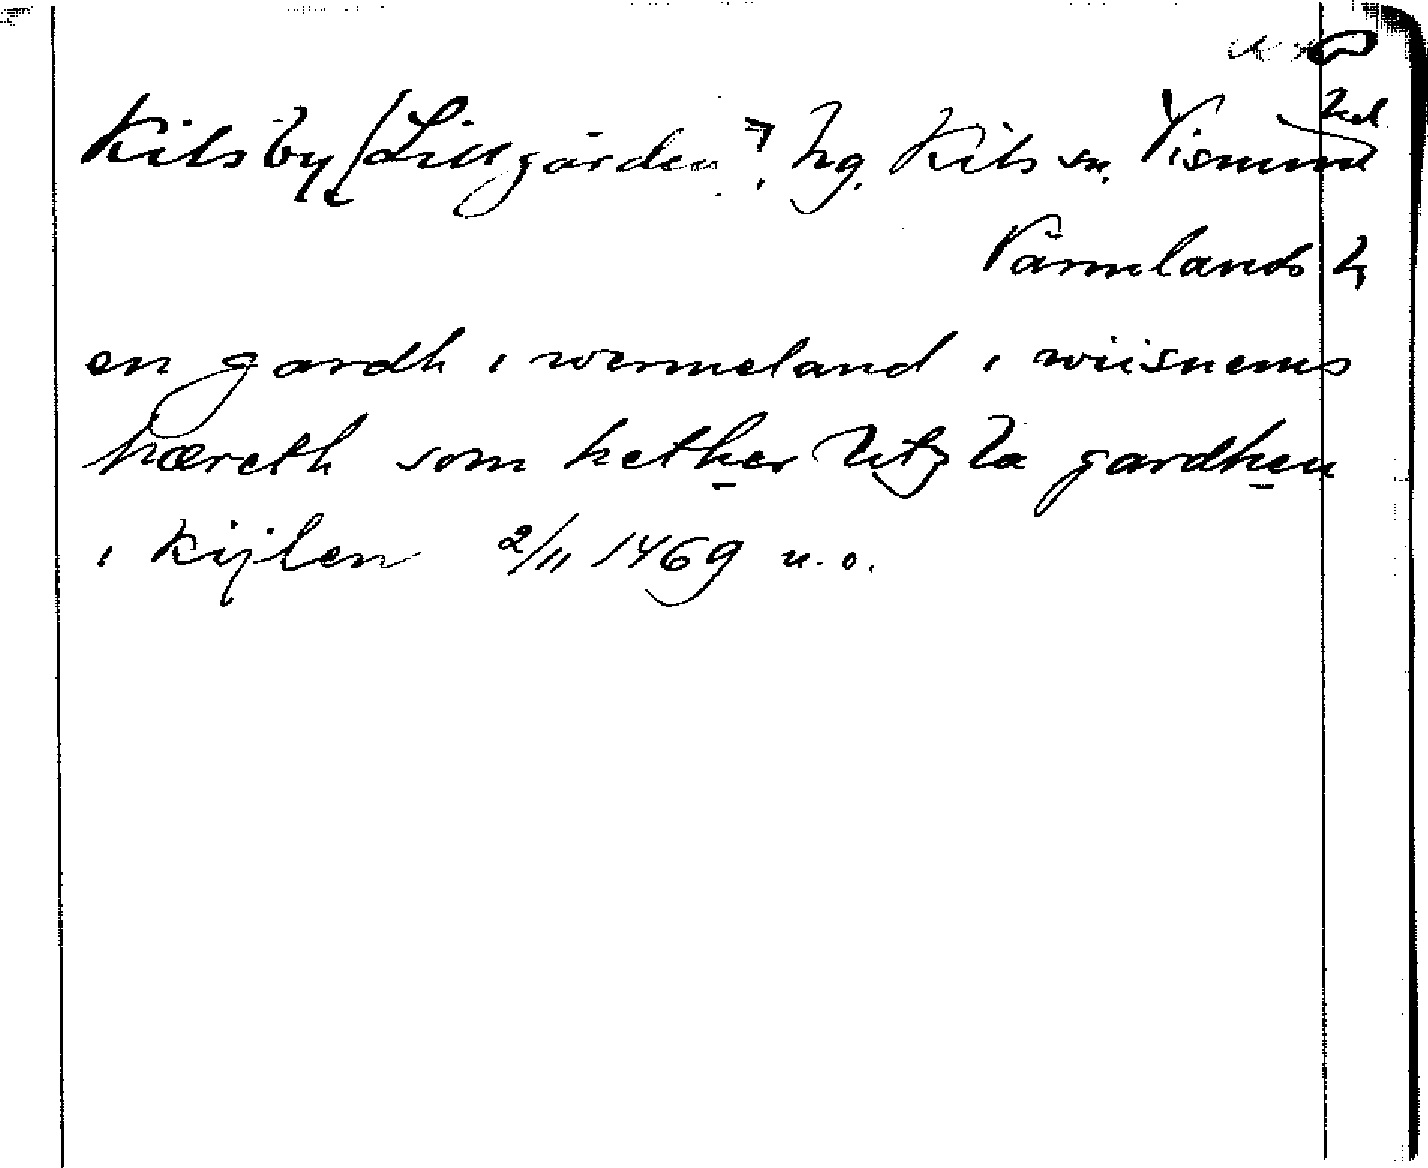 Kilsby [Lillgården?], hg. Kils sn. Visnums hd
Värmlands l.
en gardh i wermeland i wiisnems
hæreth som hether litzla gardhen
i kijlen 2/11 1469 u.o.